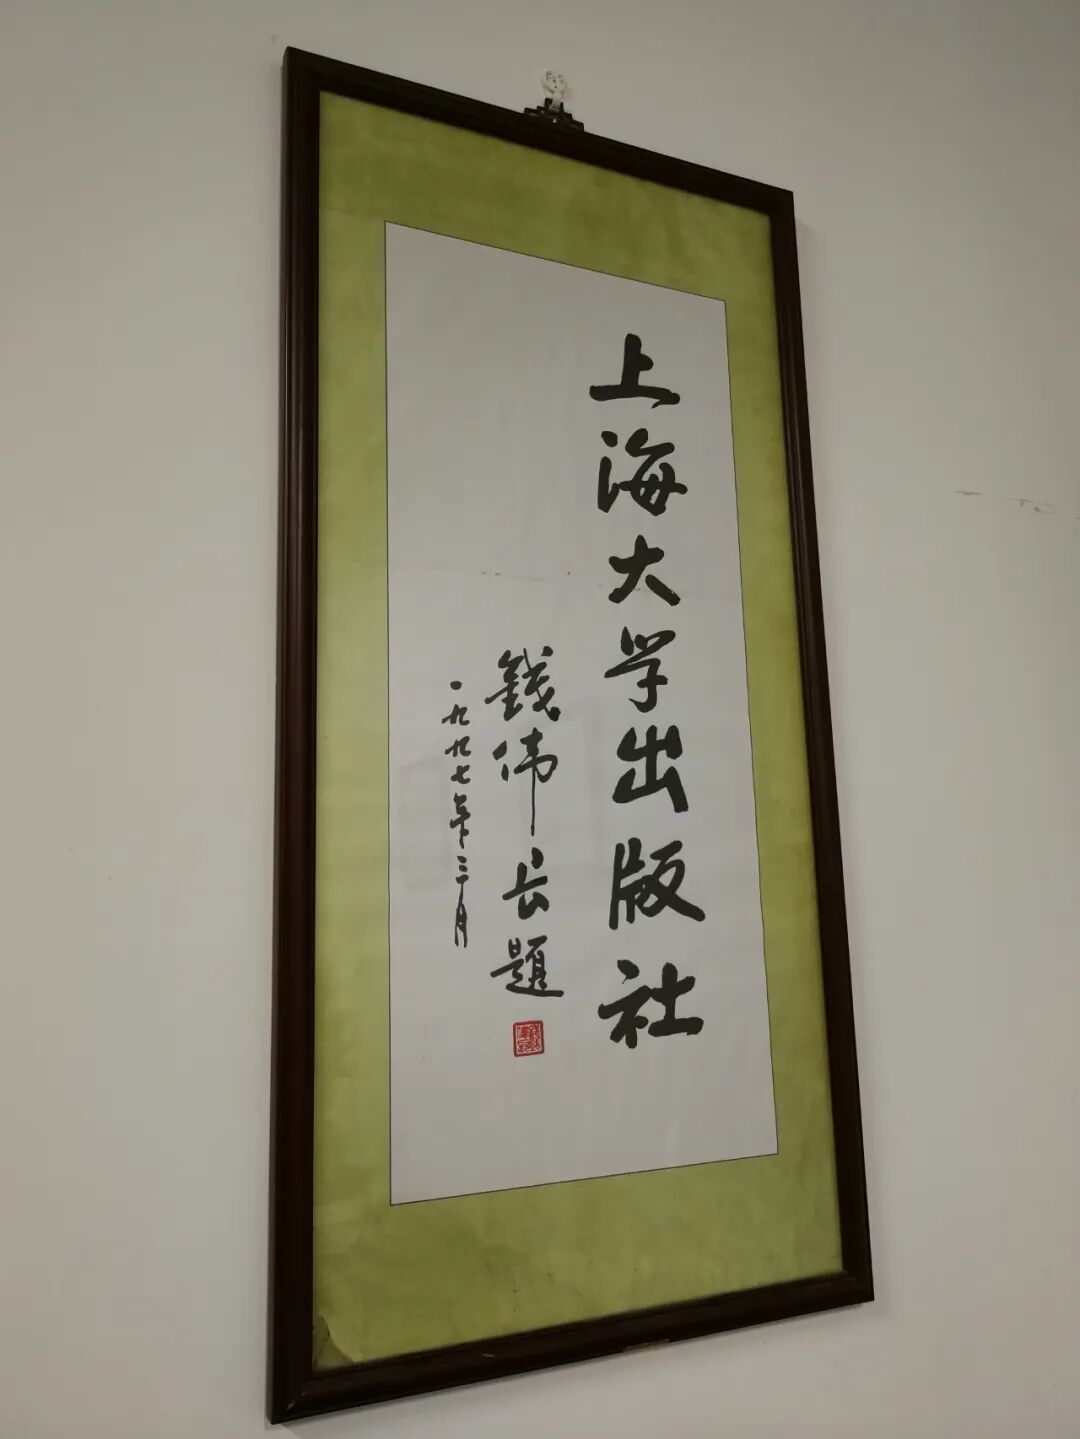 上海大学出版社
錢伟長題
一九九七年三月